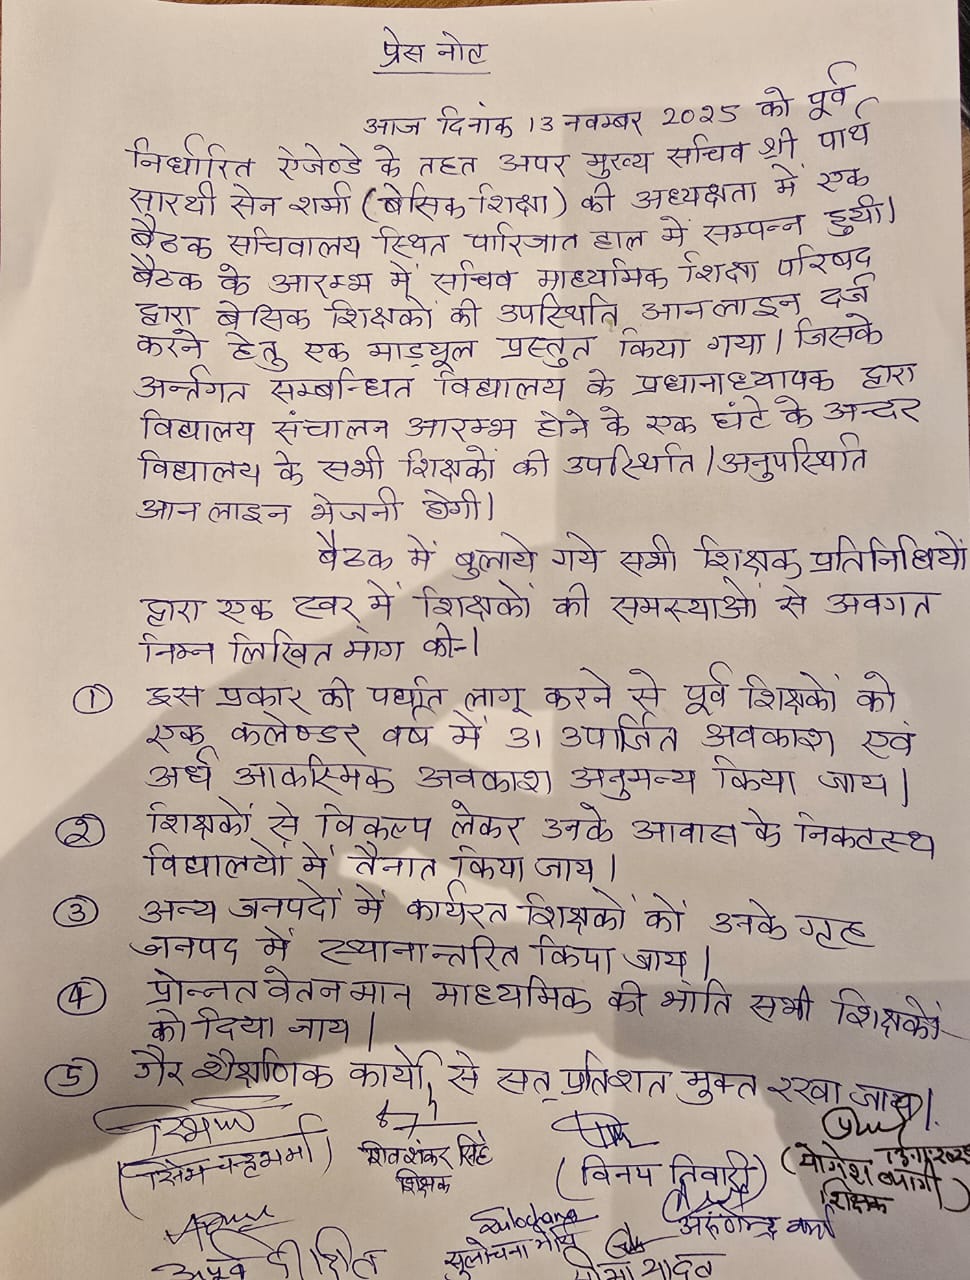 प्रेस नोट
आज दिनांक 13 नवम्बर 2025 को पूर्व
निर्धारित ऐजेण्डे के तहत अपर मुख्य सचिव श्री पार्थ
सारथी सेन शर्मा (बेसिक शिक्षा) की अध्यक्षता में एक
बैठक सचिवालय स्थित पारिजात हाल में सम्पन्न हुयी।
बैठक के आरम्भ में सचिव माध्यमिक शिक्षा परिषद
द्वारा बेसिक शिक्षकों की उपस्थिति आनलाइन दर्ज
करने हेतु एक माड्यूल प्रस्तुत किया गया। जिसके
अर्न्तगत सम्बन्धित विद्यालय के प्रधानाध्यापक द्वारा
विद्यालय संचालन आरम्भ होने के एक घंटे के अन्दर
विद्यालय के सभी शिक्षकों की उपस्थिति/अनुपस्थिति
आन लाइन भेजनी होगी।
बैठक में बुलाये गये सभी शिक्षक प्रतिनिधियों
द्वारा एक स्वर में शिक्षकों की समस्याओं से अवगत
निम्न लिखित मांग की-।
① इस प्रकार की पद्धति लागू करने से पूर्व शिक्षकों को
एक कलेण्डर वर्ष में 31 उपार्जित अवकाश एवं
अर्ध आकस्मिक अवकाश अनुमन्य किया जाय।
② शिक्षकों से विकल्प लेकर उनके आवास के निकटस्थ
विद्यालयों में तैनात किया जाय।
③ अन्य जनपदों में कार्यरत शिक्षकों को उनके गृह
जनपद में स्थानान्तरित किया जाय।
④ प्रोन्नत वेतनमान माध्यमिक की भांति सभी शिक्षकों
को दिया जाय।
⑤ गैर शैक्षणिक कार्यो से सत् प्रतिशत मुक्त रखा जाय।
शिवशंकर सिंह
शिक्षक
(विनय तिवारी)
(योगेश त्यागी)
शिक्षक
Sulochana
सुलोचना मौर्य
यादव